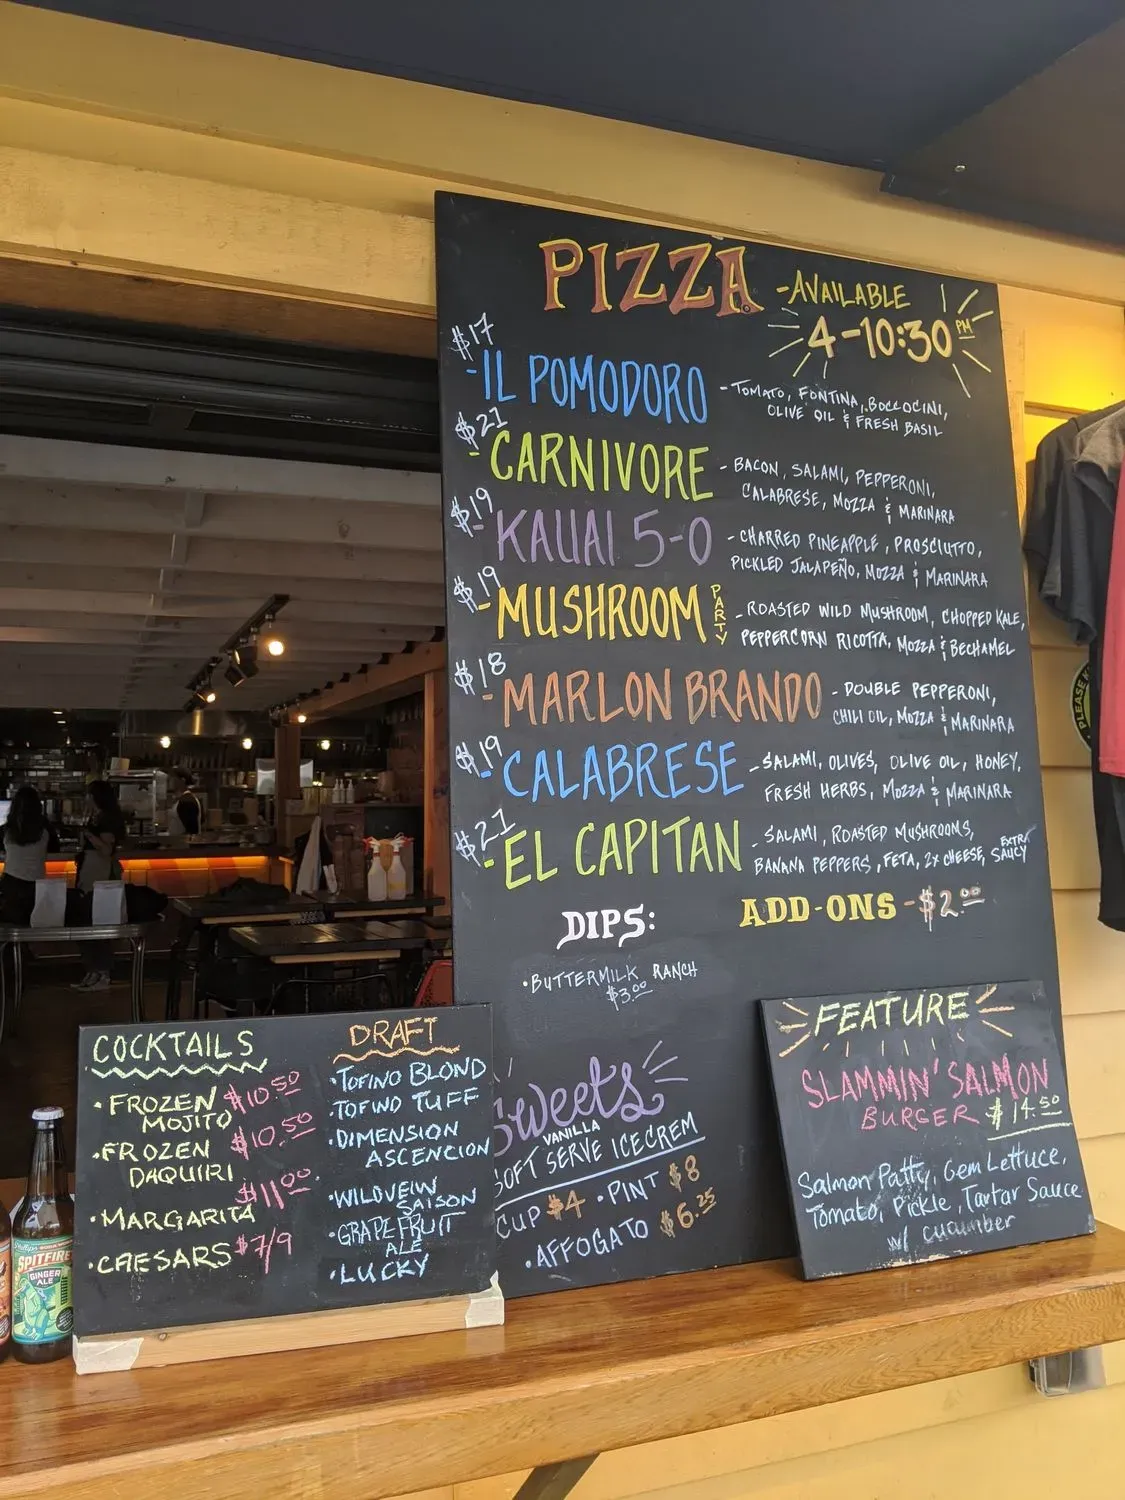 PIZZA
-AVAILABLE
4-10:30 PM
$17
-IL POMODORO
-TOMATO, FONTINA, BOCCOCINI,
OLIVE OIL & FRESH BASIL
$21
-CARNIVORE
-BACON, SALAMI, PEPPERONI,
CALABRESE, MOZZA & MARINARA
$19
-KAUAI 5-0
-CHARRED PINEAPPLE, PROSCIUTTO,
PICKLED JALAPEÑO, MOZZA & MARINARA
$19
-MUSHROOM PARTY
-ROASTED WILD MUSHROOM, CHOPPED KALE,
PEPPERCORN RICOTTA, MOZZA & BECHAMEL
$18
-MARLON BRANDO
-DOUBLE PEPPERONI,
CHILI OIL, MOZZA & MARINARA
$19
-CALABRESE
-SALAMI, OLIVES, OLIVE OIL, HONEY,
FRESH HERBS, MOZZA & MARINARA
$21
-EL CAPITAN
-SALAMI, ROASTED MUSHROOMS,
BANANA PEPPERS, FETA, 2X CHEESE, EXTRA SAUCY
DIPS:
•BUTTERMILK RANCH
$3.00
ADD-ONS -$2.00
Sweets
VANILLA
SOFT SERVE ICECREM
CUP $4 •PINT $8
•AFFOGATO $6.25
COCKTAILS
•FROZEN MOJITO $10.50
•FROZEN DAQUIRI $10.50
•MARGARITA $11.00
•CAESARS $7/9
DRAFT
•TOFINO BLOND
•TOFINO TUFF
•DIMENSION
ASCENCION
•WILDVEIW
SAISON
•GRAPEFRUIT
ALE
•LUCKY
FEATURE
SLAMMIN' SALMON
BURGER $14.50
Salmon Patty, Gem Lettuce,
Tomato, Pickle, Tartar Sauce
w/ cucumber
Phillips
SPITFIRE
GINGER
ALE
PLEASE K